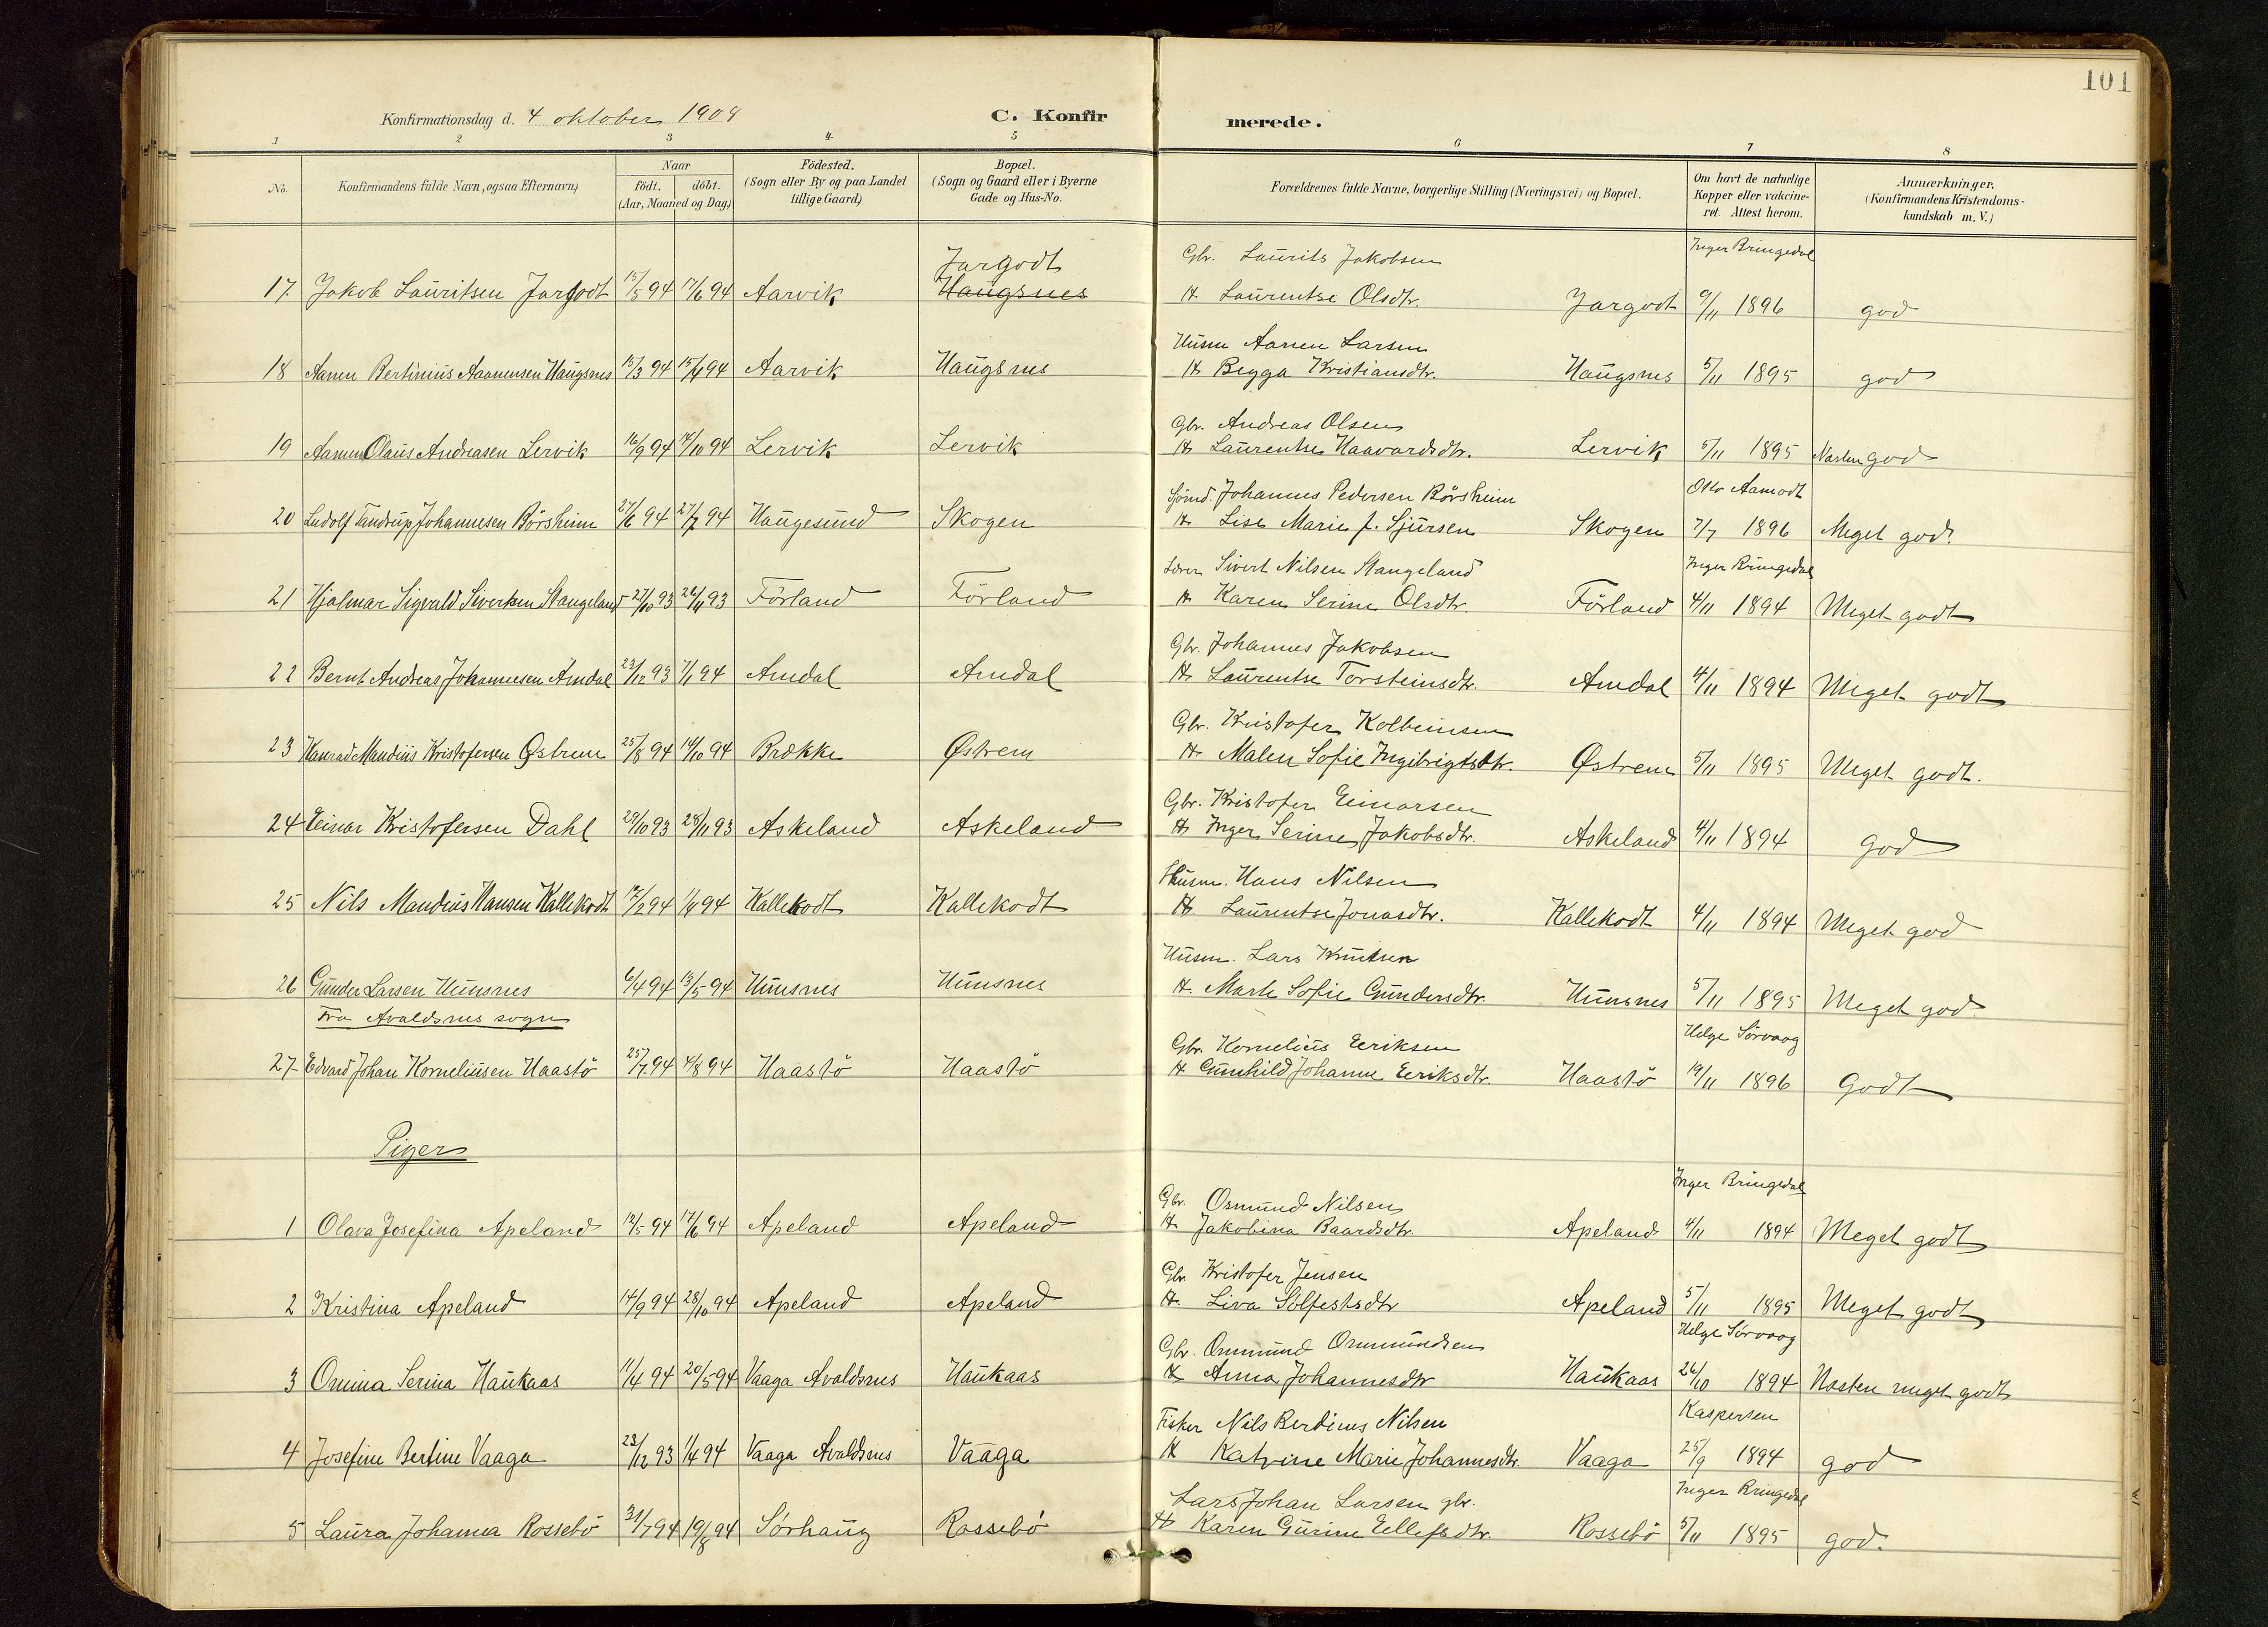 101
Konfirmationsdag d. 4 oktober 1908
C. Konfirmerede.
1 2 3 4 5 6 7 8
No.
Konfirmandens fulde Navn, ogsaa Efternavn)
Naar
födt. döbt.
(Aar, Maaned og Dag)
Födested.
(Sogn eller By og paa Landet
tillige Gaard)
Bopæl.
(Sogn og Gaard eller i Byerne
Gade og Hus-No.
Forældrenes fulde Navne, borgerlige Stilling (Næringsvei) og Bopæl.
Om havt de naturlige
Kopper eller vakcine-
ret. Attest herom.
Anmærkninger.
(Konfirmandens Kristendoms-
kundskab m. V.)
Jargodt Gbr. Laurits Jakobsen Inger Bringedal
17. Jakob Lauritsen Jargodt 15/5 94 17/6 94 Aarvik Haugsnes H Laurentse Olsdtr. Jargodt 9/11 1896 god
Husm Aanen Larsen
18 Aanen Bertinius Aanensen Haugsnes 15/3 94 15/4 94 Aarvik Haugsnes H Begga Kristiansdtr. Haugsnes 5/11 1895 god
Gbr. Andreas Olsen
19 Aanen Olaus Andreasen Lervik 16/9 94 7/10 94 Lervik Lervik H Laurentse Haavardsdtr. Lervik 5/11 1895 Næsten god
Sjömd. Johannes Pedersen Börsheim Olav Aamodt
20 Ludolf Tandrup Johannesen Börsheim 27/6 94 27/7 94 Haugesund Skogen H Lise Marie f. Sjursen Skogen 7/7 1896 Meget god.
Lærer Sivert Nilsen Stangeland Inger Bringedal
21 Hjalmar Sigvald Sivertsen Stangeland 27/10 93 26/11 93 Förland Förland H Karen Serine Olsdtr. Förland 4/11 1894 Meget godt
Gbr. Johannes Jakobsen
22 Bernt Andreas Johannesen Amdal 23/12 93 7/1 94 Amdal Amdal H Laurentse Torsteinsdtr. Amdal 4/11 1894 Meget godt
Gbr. Kristofer Kolbeinsen
23 Konrad Mandius Kristofersen Østrem 25/8 94 14/10 94 Brække Østrem H Malen Sofie Ingibrigtsdtr. Østrem 5/11 1895 Meget godt.
Gbr. Kristofer Einarsen
24 Einar Kristofersen Dahl 29/10 93 28/11 93 Askeland Askeland H Inger Serine Jakobsdtr. Askeland 4/11 1894 god
Husm. Hans Nilsen
25 Nils Mandius Hansen Kallekodt 17/2 94 1/4 94 Kallekodt Kallekodt H Laurentse Jonasdtr. Kallekodt 4/11 1894 Meget god
Husm. Lars Knutsen
26 Gunder Larsen Hunsnes 6/4 94 13/5 94 Hunsnes Hunsnes H. Marte Sofie Gundersdtr. Hunsnes 5/11 1895 Meget god.
Fra Avaldsnes sogn
Gbr. Kornelius Eeriksen Helge Sørvaag
27 Edvard Johan Korneliusen Haastö 25/7 94 4/8 94 Haastö Haastö H Gunhild Johanne Eeriksdtr. Haastö 19/11 1896 Godt
Piger
Gbr. Osmund Nilsen Inger Bringedal
1 Olava Josefina Apeland 12/5 94 17/6 94 Apeland Apeland H Jakobina Baardsdtr. Apeland 4/11 1894 Meget godt
Gbr. Kristofer Jensen
2 Kristina Apeland 14/9 94 28/10 94 Apeland Apeland H. Liva Solfestsdtr Apeland 5/11 1895 Meget godt
Gbr. Ommund Ommundsen Helge Sørvaag
3 Omina Serina Haukaas 11/4 94 20/5 94 Vaaga Avaldsnes Haukaas H Anna Johannesdtr Haukaas 26/10 1894 Næsten meget godt
Fisker Nils Berdines Nilsen Kaspersen
4 Josefine Bertine Vaaga 23/12 93 1/4 94 Vaaga Avaldsnes Vaaga H Katrine Marie Johannesdtr. Vaaga 25/9 1894 god
Lars Johan Larsen gbr. Inger Bringedal
5 Laura Johanna Rossebö 31/7 94 19/8 94 Sörhaug Rossebö H Karen Gurine Ellefsdtr. Rossebö 5/11 1895 god.